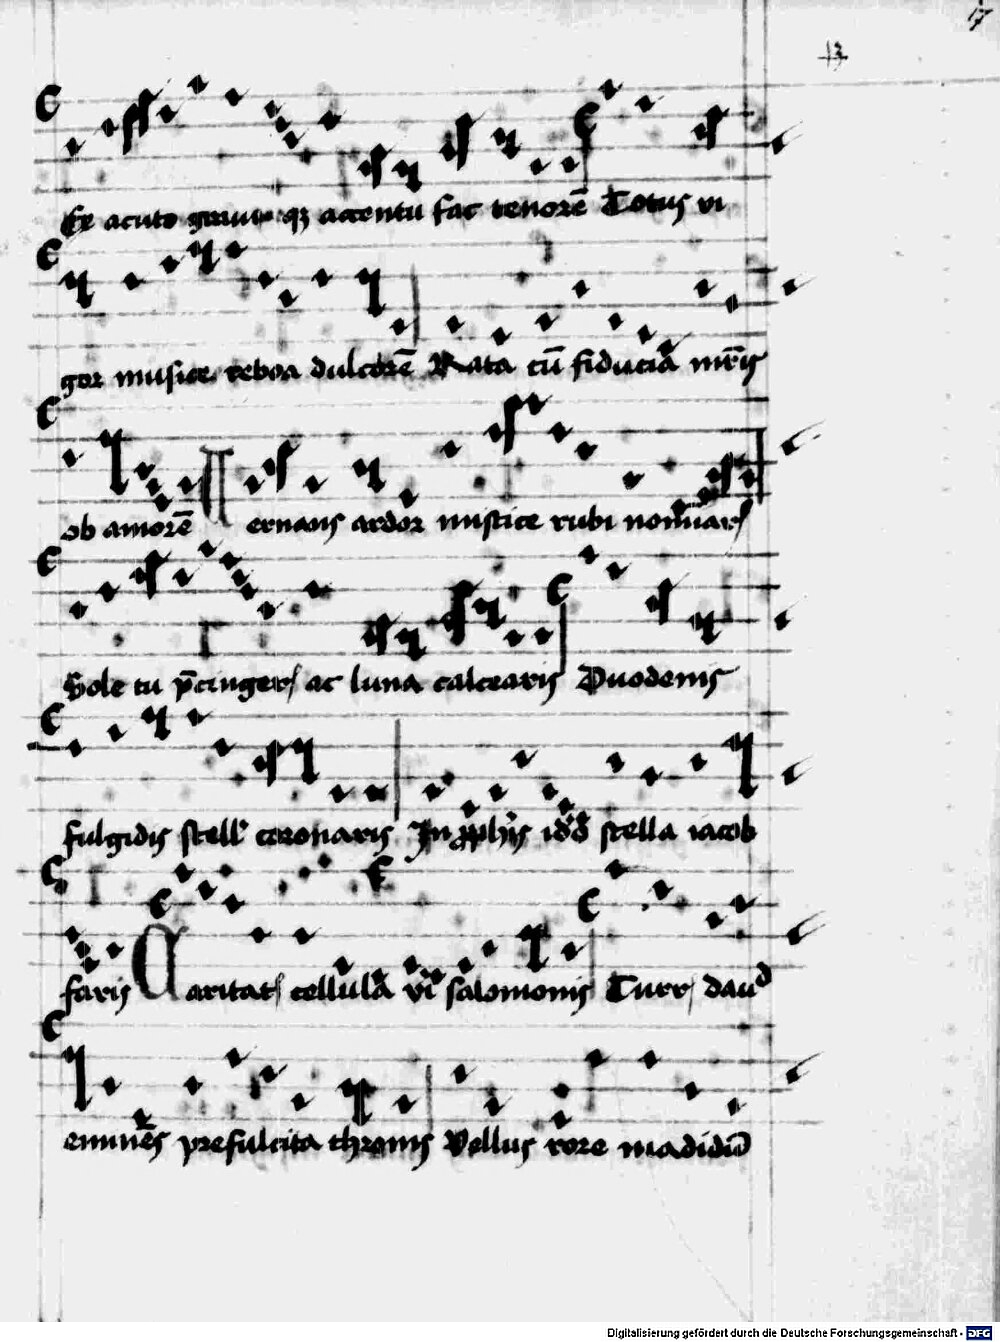 17
13
Ex acuto grauiq₃ accentu fac tenorē Totus vi
gor musice reboa dulcorē Rata cū fiducia nr̄is
ob amorē Uernans ardor mistice rubi nomīaris
Sole tu p̄cingeris ac luna calcearis Duodenis
fulgidis stell' coronaris In p̄ph̄is id'd stella iacob
faris Caritat' cellulā vī salomonis Turr' dauid
eminēs prefulcita thronis Vellus rore madidū
Digitalisierung gefördert durch die Deutsche Forschungsgemeinschaft - DFG